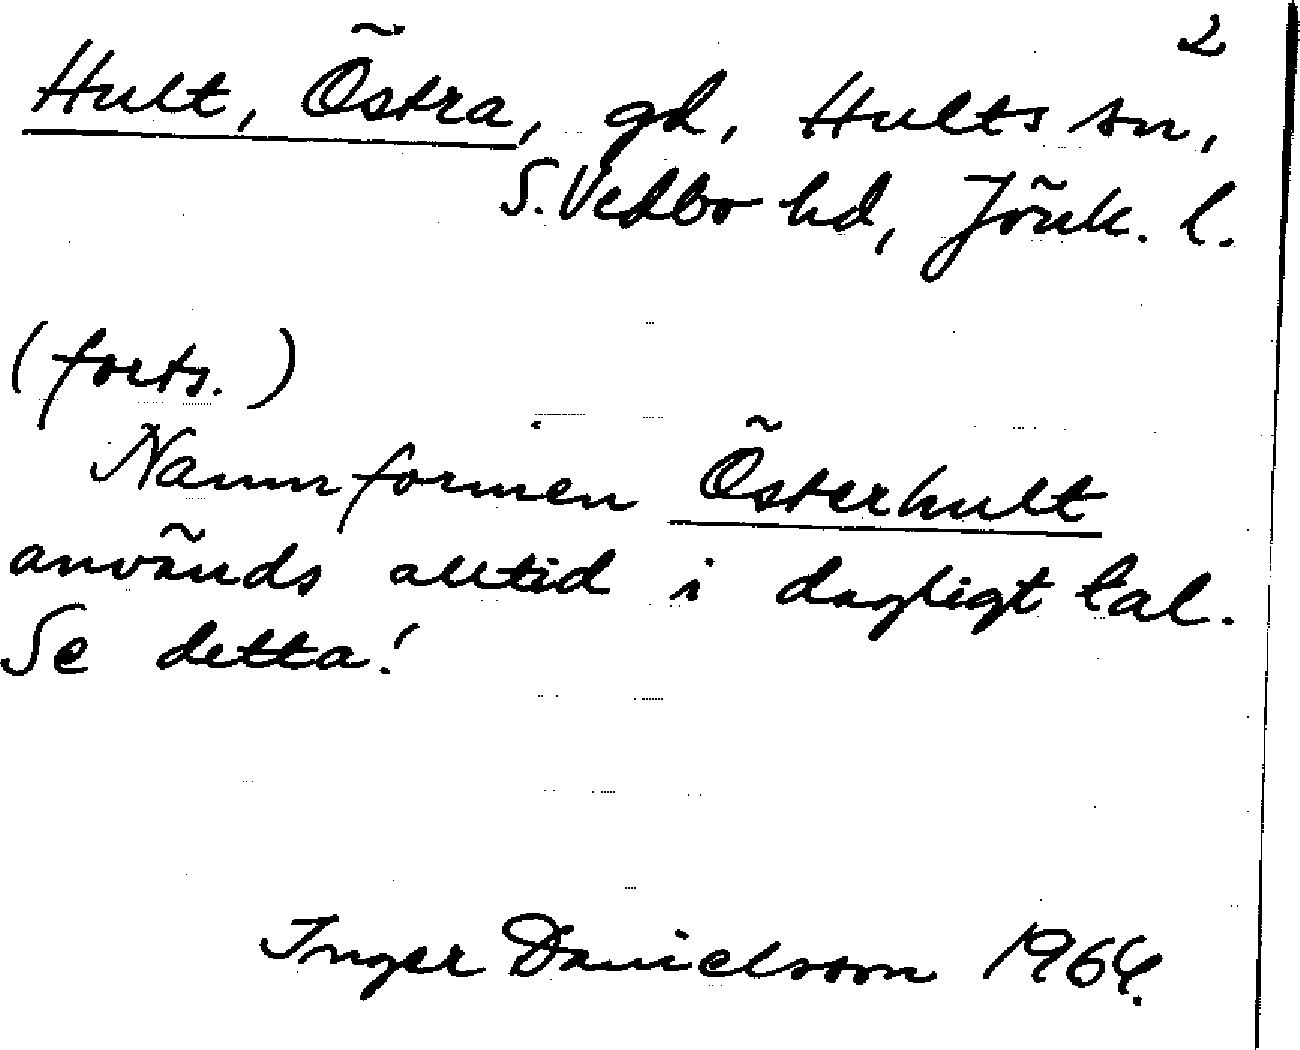 2
Hult, Östra, gd, Hults sn,
S. Vedbo hd, Jönk. l.
(forts.)
Namnformen Österhult
används alltid i dagligt tal.
Se detta!
Inger Danielsson 1964.